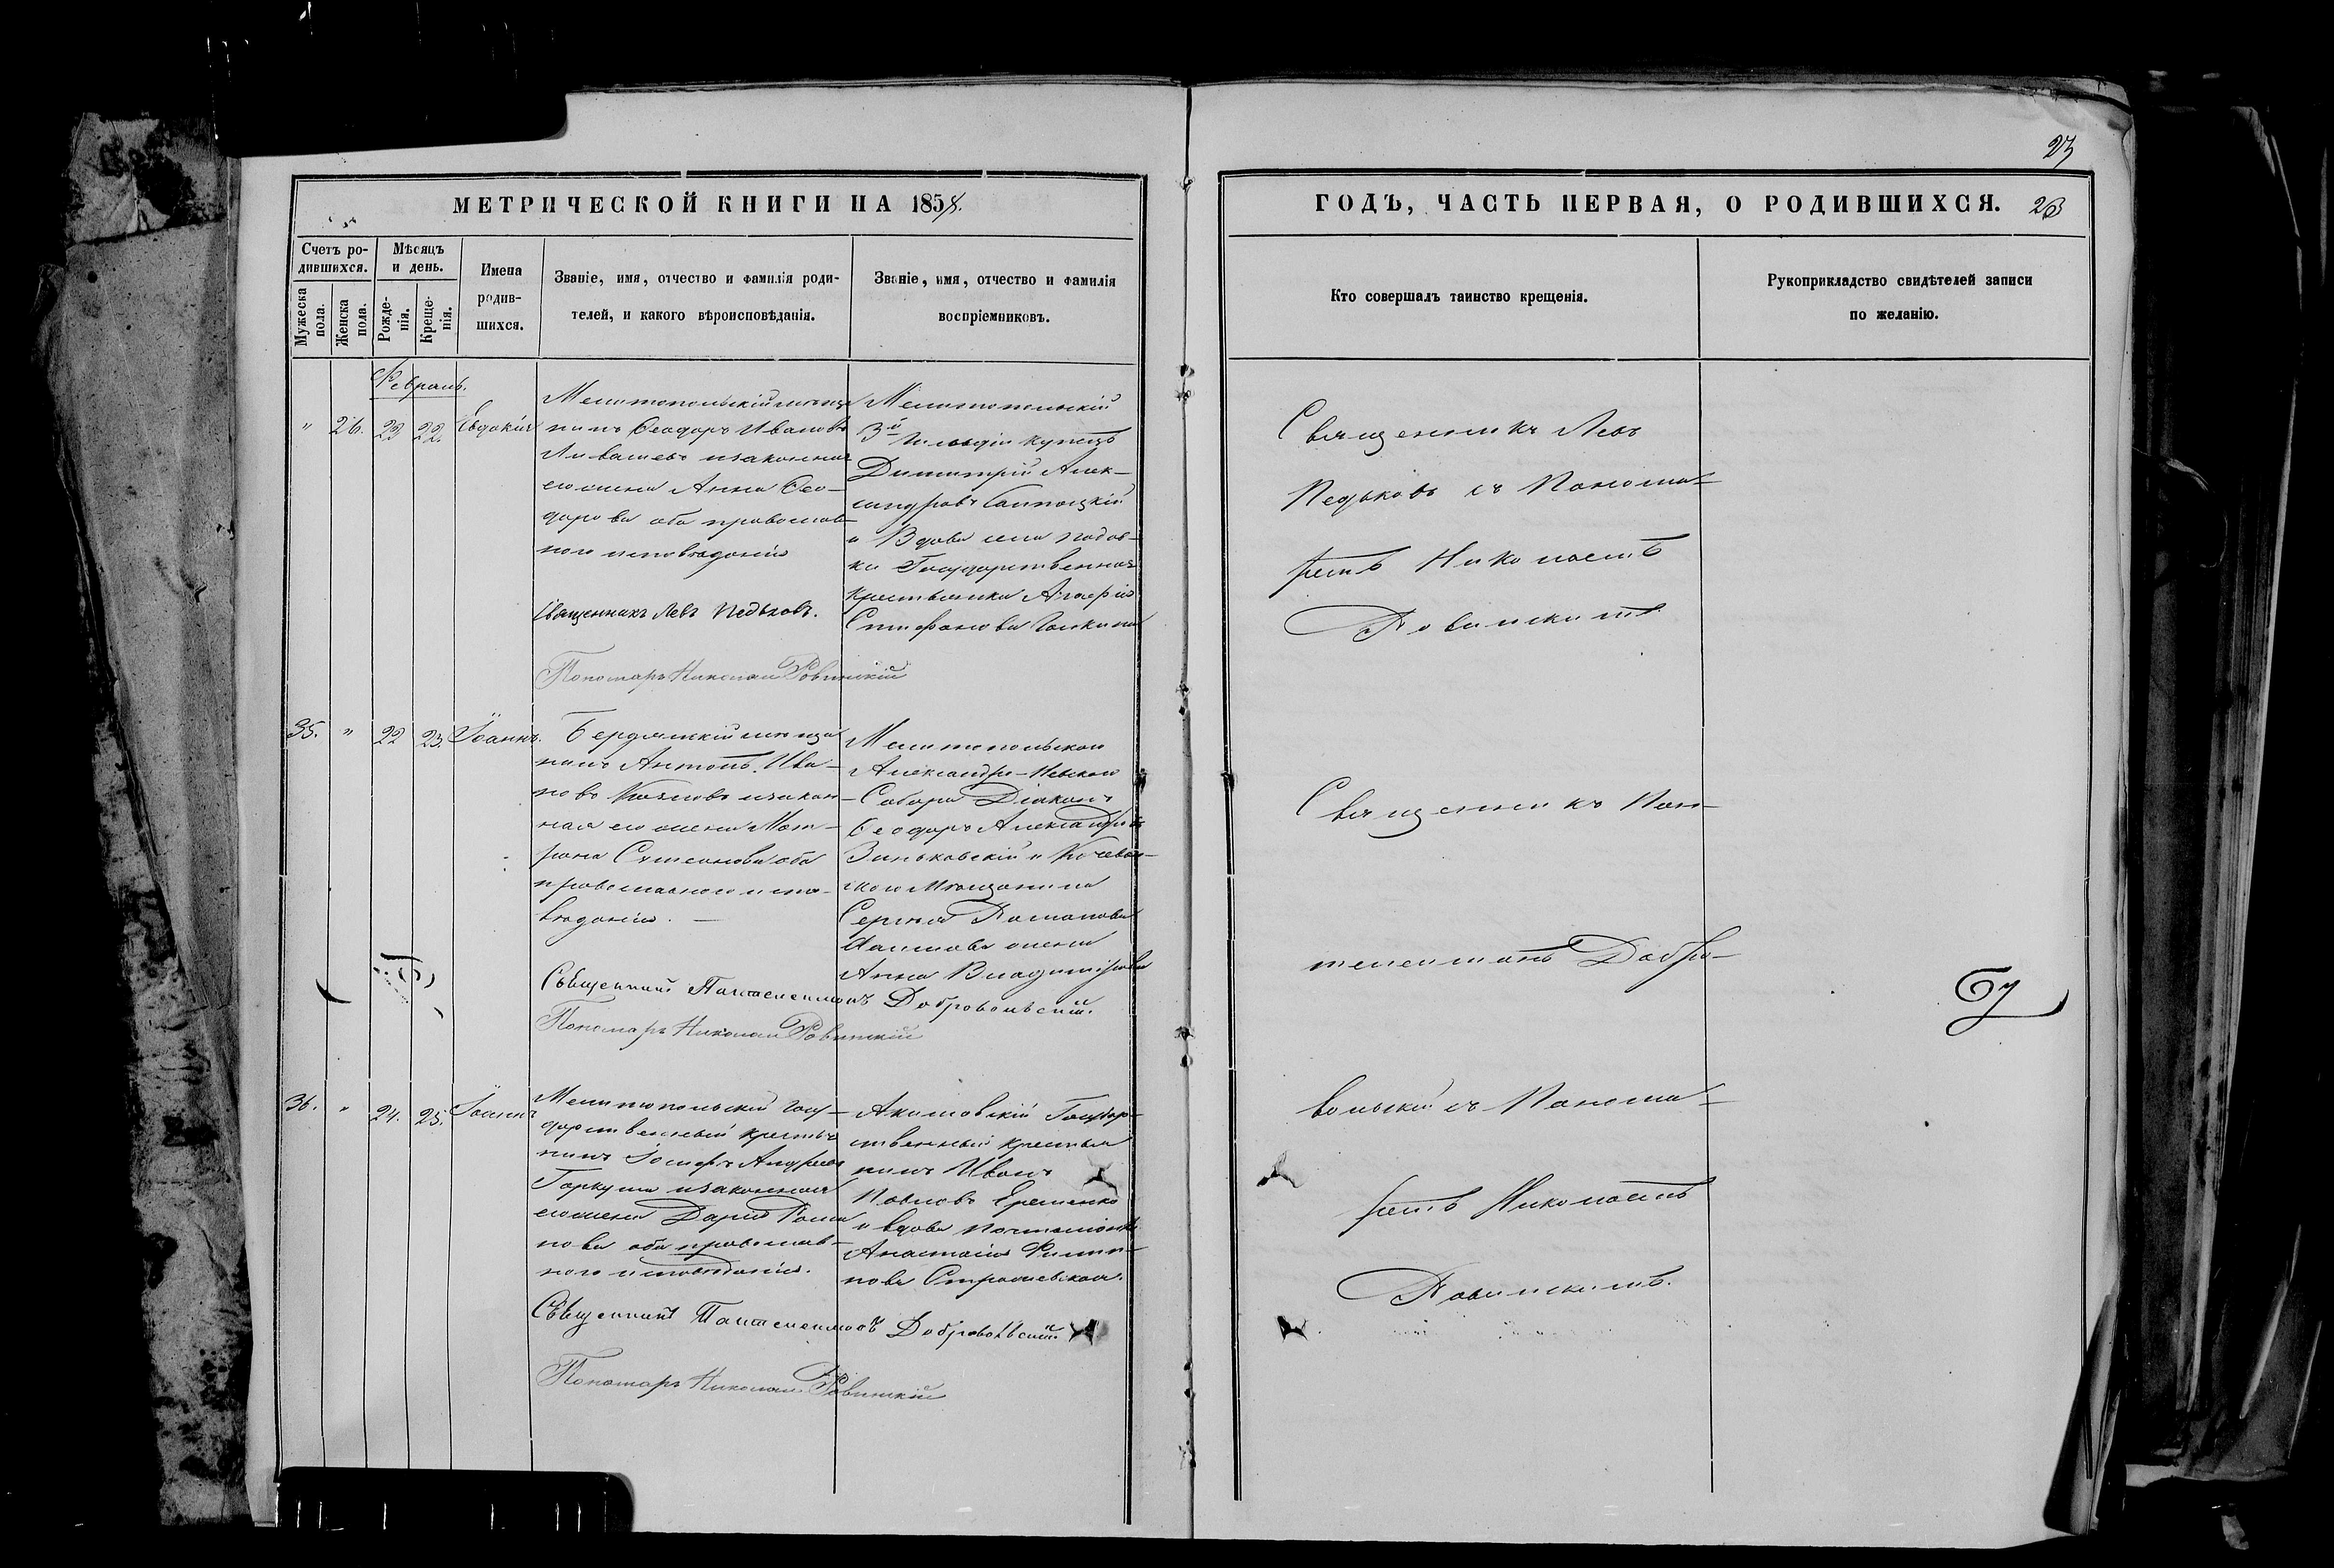 23
МЕТРИЧЕСКОЙ КНИГИ НА 1858.
ГОДЪ, ЧАСТЬ ПЕРВАЯ, О РОДИВШИХСЯ. 23
Счетъ ро-
дившихся.
Мужеска пола.
Женска пола.
Мѣсяцъ
и день.
Рожде-
нія.
Креще-
нія.
Имена
родив-
шихся.
Званіе, имя, отчество и фамилія роди-
телей, и какого вѣроисповѣданія.
Званіе, имя, отчество и фамилія
воспріемниковъ.
Кто совершалъ таинство крещенія.
Рукоприкладство свидѣтелей записи
по желанію.
Февраль.
" 26. 22. Евдокія
Мелитопольскій мѣща
нинъ Ѳеодоръ Ивановъ
изаконная
его жена Анна Ѳео-
дорова оба православ-
наго исповѣданія
Священникъ Левъ Педьковъ.
Пономарь Николай Ровинскій
Мелитопольскій
3й Гильдіи купецъ
Димитрій Алек-
сандровъ
и Вдова села
Государственная
крестьянка
Стефанова
Священникъ Левъ
Педьковъ съ Понома-
ремъ Николаемъ
Ровинскимъ
35. " 22 23. Іоаннъ.
Бердянскій мѣща
нинъ Антонъ Ива-
новъ Козловъ изакон-
ная его жена Мат-
рона Симеонова оба
православнаго испо-
вѣданія.
Священникъ Пантелеимонъ Добровольскій.
Пономарь Николай Ровинскій
Мелитопольскаго
Александро-Невскаго
Собора Діаконъ
Ѳеодоръ Александровъ
Зиньковскій и
скаго Мѣщанина
Сергѣя Романова
жена
Анна Владимірова
Священникъ Пан-
телеимонъ Добро-
вольскій съ Понома-
ремъ Николаемъ
Ровинскимъ.
36. " 24. 25. Іоаннъ
Мелитопольскій Госу-
дарственный крестья
нинъ Іосифъ Андреевъ
Горкуша изаконная
его жена Дарія Рома
нова оба православ-
наго исповѣданія.
Священникъ Пантелеимонъ Добровольскій
Пономарь Николай Ровинскій
Акимовскій Государ-
ственный крестья
нинъ Иванъ
Павловъ Еременко
и вдова
Анастасія Филип-
пова